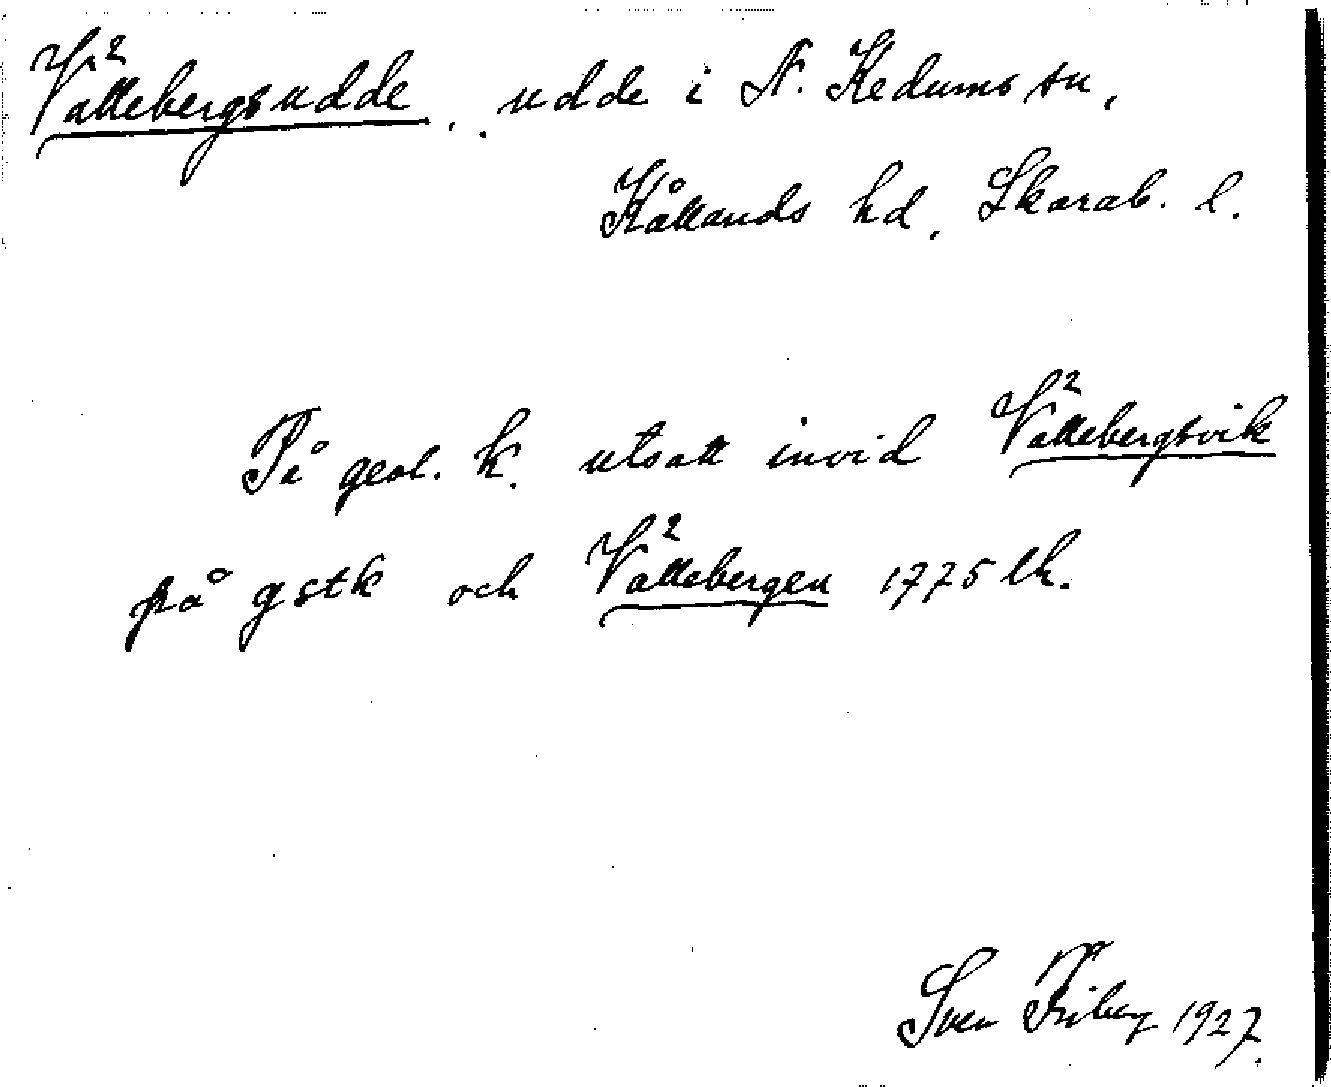 V²allebergsudde, udde i N. Kedums sn,
Kållands hd, Skarab. l.
På geol. k. utsatt invid V²allebergsvik
på gstk och V²allebergen 1775 lk.
Sven Friberg 1927.